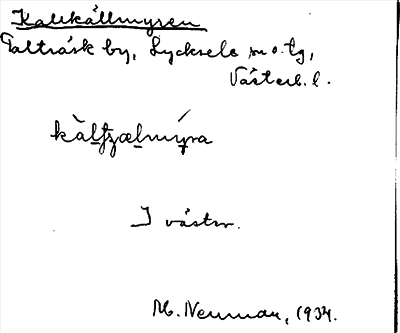 Kallkällmyren
Falträsk by, Lycksele sn o. tg,
Västerb. l.
kàlʃʒælmýra
I väster.
M. Neuman, 1934.